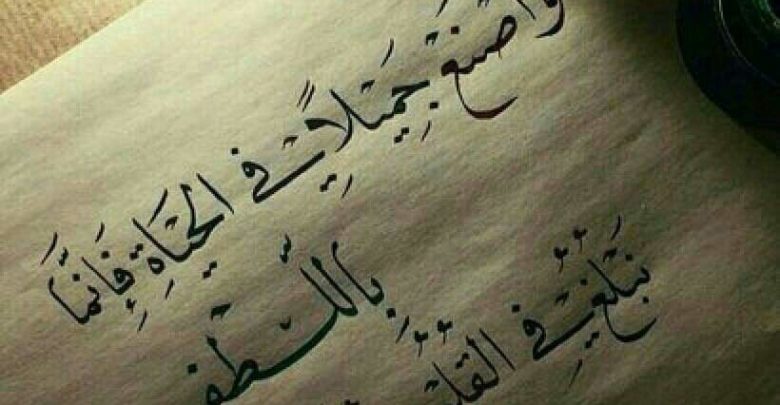 واصنع جَمِيلاً في الحَيَاةِ فَإِنمَّا
بِاللُّطف
نَبلُغ في